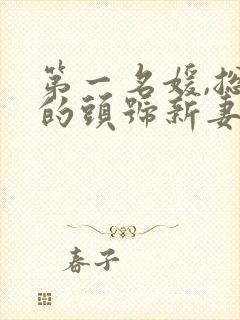 第一名媛,总
的頭號新妻
春子